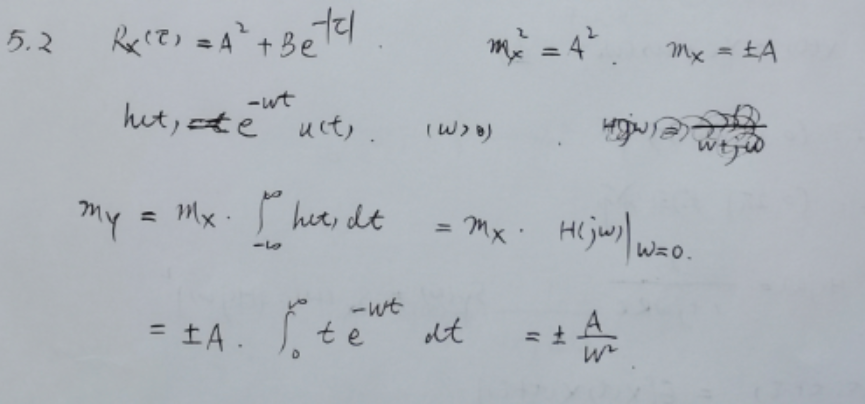 5.2 Rx(τ) = A² + Be^-|τ|. mx² = A². mx = ±A
h(t) = te^-wt u(t). (w>0). H(jw) = w+jω
mY = mx · ∫_-∞^∞ h(t) dt = mx · H(jw)|w=0.
= ±A · ∫_0^∞ t e^-wt dt = ± A/w².